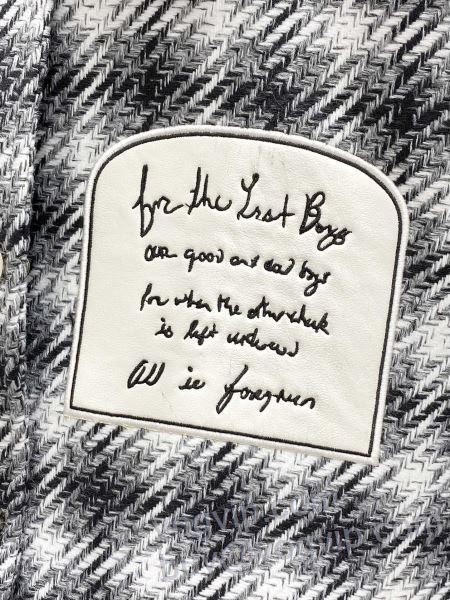 for the Lost Boys
our good and bad boys
for when the other cheek
is left unturned
All is forgiven